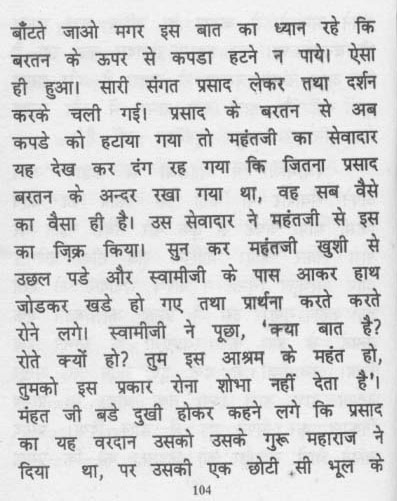 बाँटते जाओ मगर इस बात का ध्यान रहे कि
बरतन के ऊपर से कपडा हटने न पाये। ऐसा
ही हुआ। सारी संगत प्रसाद लेकर तथा दर्शन
करके चली गई। प्रसाद के बरतन से अब
कपडे को हटाया गया तो महंतजी का सेवादार
यह देख कर दंग रह गया कि जितना प्रसाद
बरतन के अन्दर रखा गया था, वह सब वैसे
का वैसा ही है। उस सेवादार ने महंतजी से इस
का ज़िक्र किया। सुन कर महंतजी खुशी से
उछल पडे और स्वामीजी के पास आकर हाथ
जोडकर खडे हो गए तथा प्रार्थना करते करते
रोने लगे। स्वामीजी ने पूछा, 'क्या बात है?
रोते क्यों हो? तुम इस आश्रम के महंत हो,
तुमको इस प्रकार रोना शोभा नहीं देता है'।
मंहत जी बडे दुखी होकर कहने लगे कि प्रसाद
का यह वरदान उसको उसके गुरू महाराज ने
दिया था, पर उसकी एक छोटी सी भूल के
104